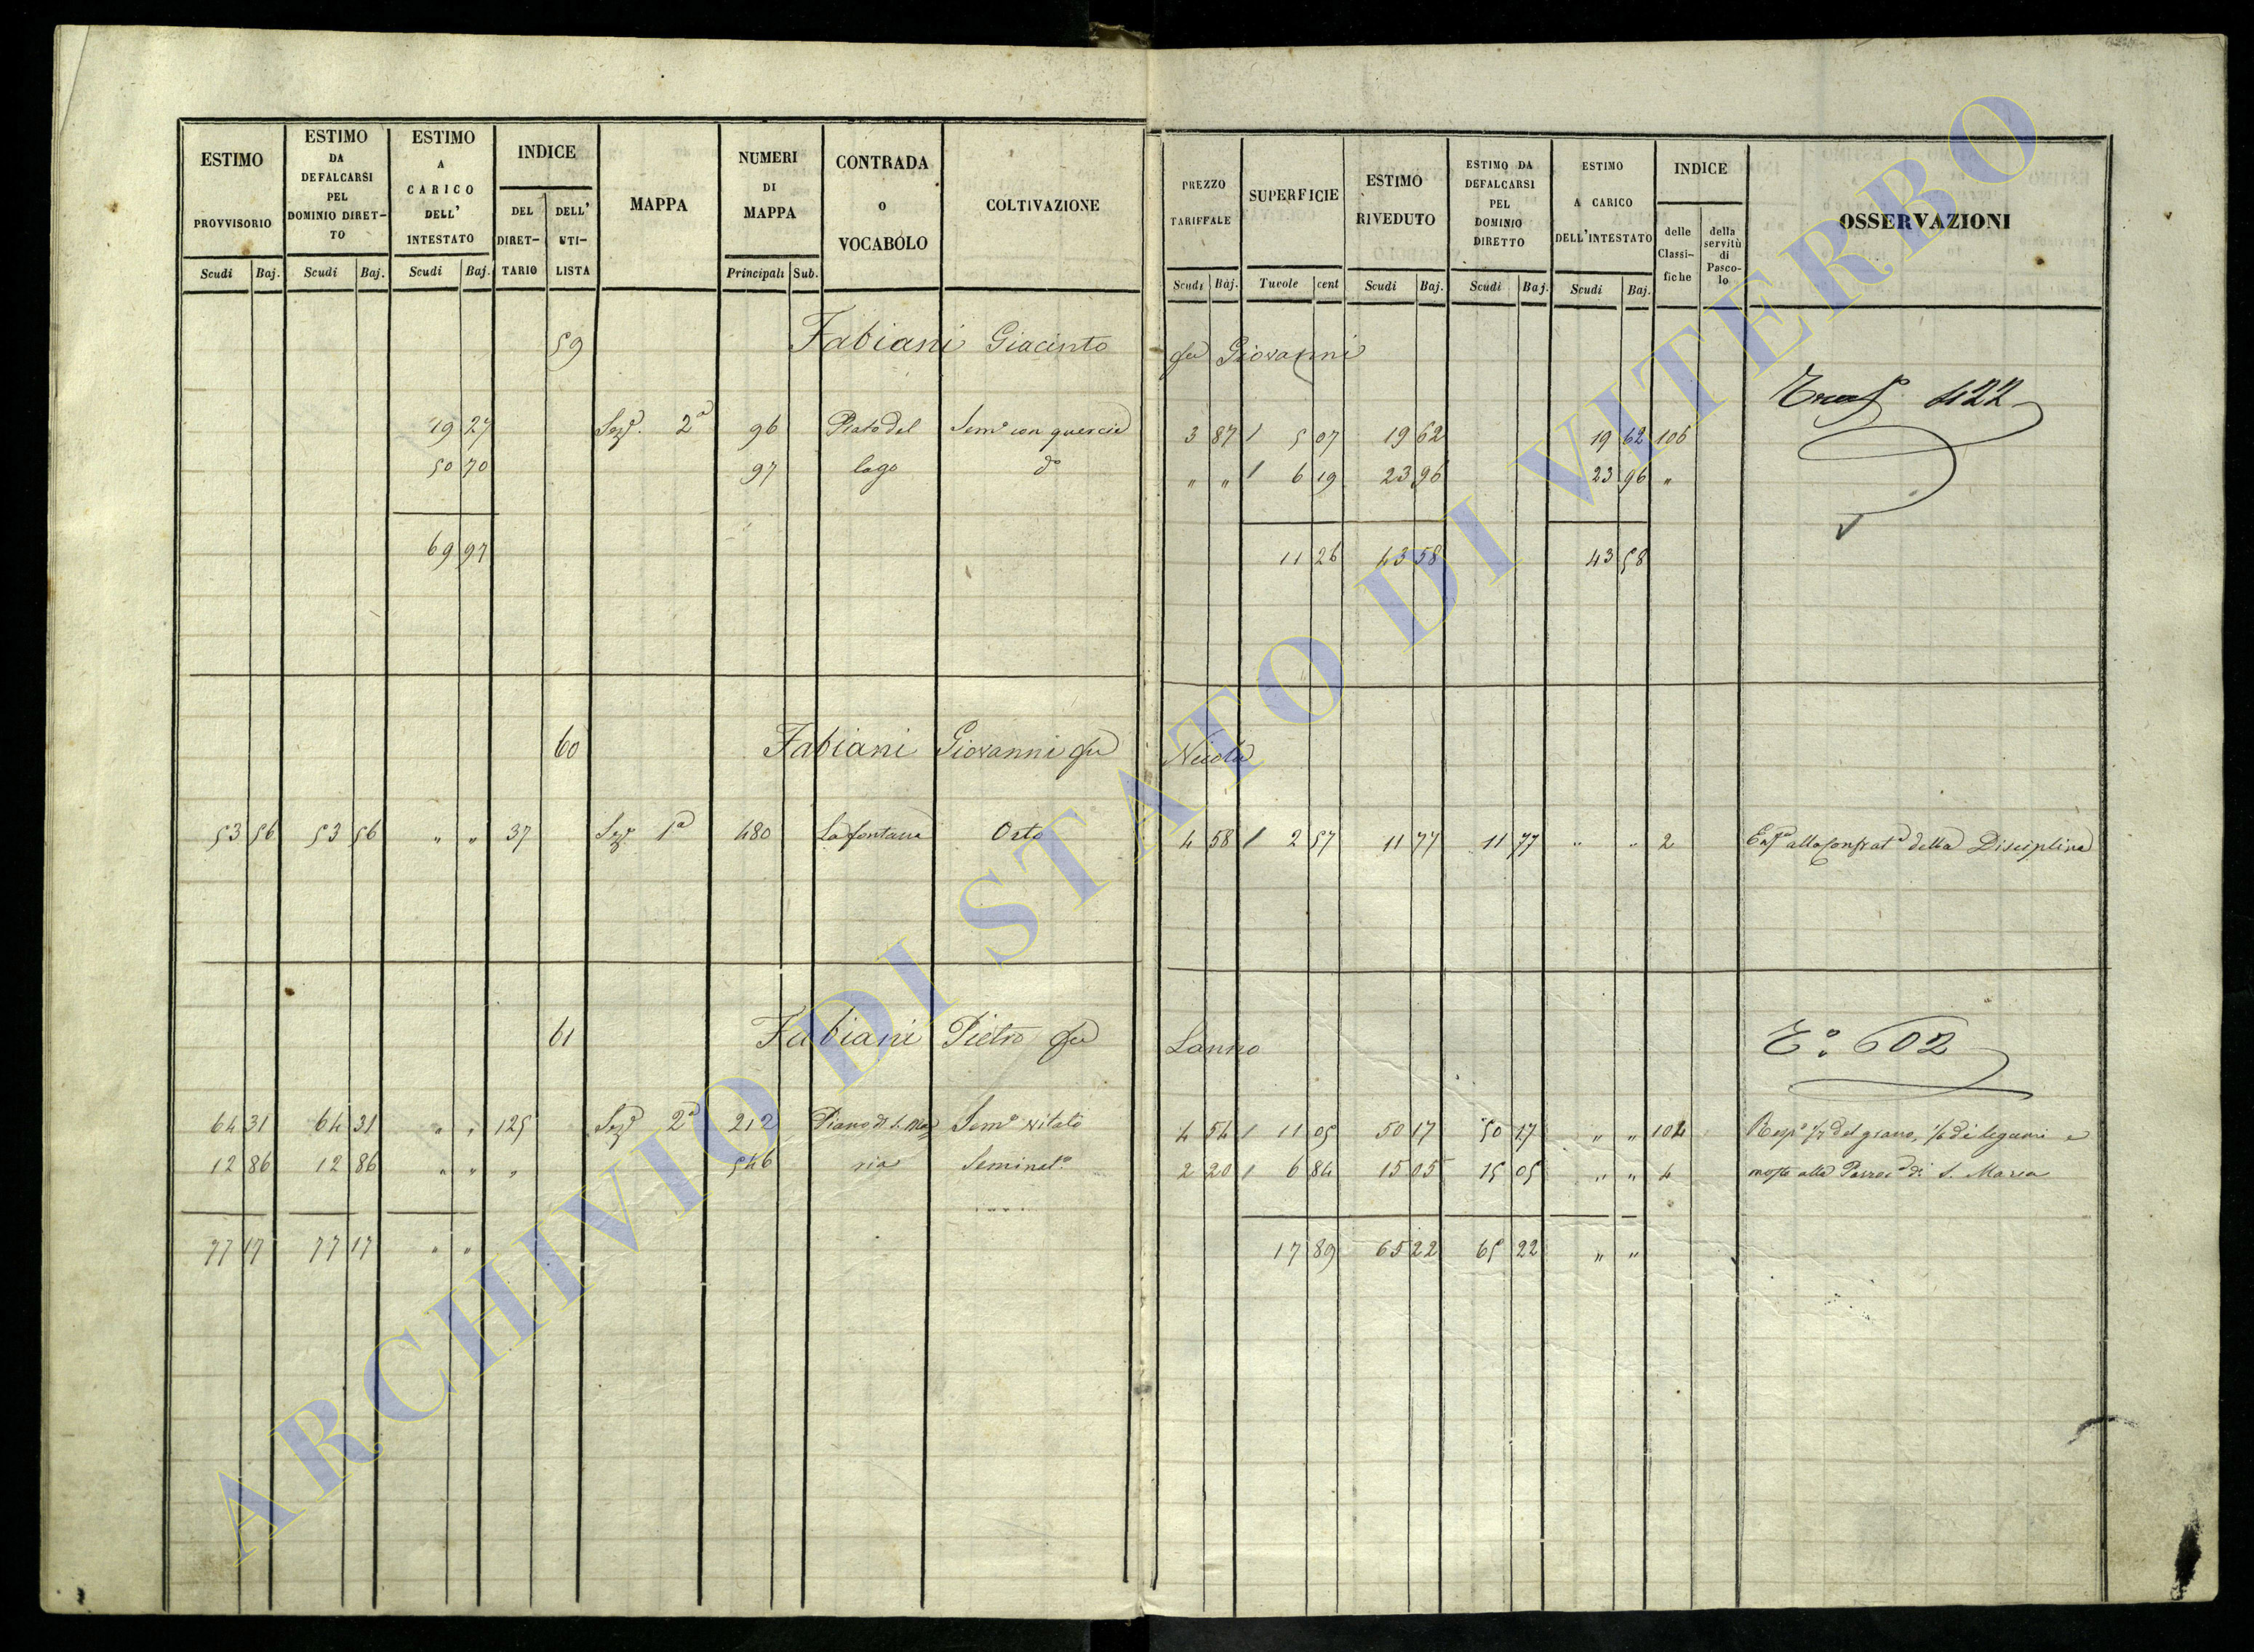 ESTIMO PROVVISORIO Scudi Baj.
ESTIMO DA DEFALCARSI PEL DOMINIO DIRET-TO Scudi Baj.
ESTIMO A CARICO DELL' INTESTATO Scudi Baj.
INDICE DEL DIRET-TARIO DELL' UTI-LISTA
MAPPA
NUMERI DI MAPPA Principali Sub.
CONTRADA o VOCABOLO
COLTIVAZIONE
PREZZO TARIFFALE Scudi Baj.
SUPERFICIE Tavole cent
ESTIMO RIVEDUTO Scudi Baj.
ESTIMO DA DEFALCARSI PEL DOMINIO DIRETTO Scudi Baj.
ESTIMO A CARICO DELL'INTESTATO Scudi Baj.
INDICE delle Classi-fiche della servitù di Pasco-lo
OSSERVAZIONI
59 Fabiani Giacinto fu Giovanni
422
19 27 Seze. 2a 96 Prato del Semo con quercie 3 87 / 5 07 19 62 19 62 106
50 70 97 lago do " " / 6 19 23 96 23 96 "
69 97 11 26 43 58 43 58
60 Fabiani Giovanni fu Nicola
53 56 53 56 " " 37 Seze 1a 480 La fontana Orto 4 58 / 2 57 11 77 11 77 " " 2 Enfa alla Confrata della Disciplina
61 Fabiani Pietro fu Lanno
To. 602
64 31 64 31 " " 125 Seze 2a 212 Piano di S. Ma Semo vitato 4 54 / 11 05 50 17 50 17 " " 104 Rispo 1/7 del grano, 1/6 di legumi e
12 86 12 86 " " " 546 ria Seminato 2 20 / 6 84 15 05 15 05 " " 4 mosto alla Parroca di S. Maria
77 17 77 17 " " 17 89 65 22 65 22 " "
ARCHIVIO DI STATO DI VITERBO